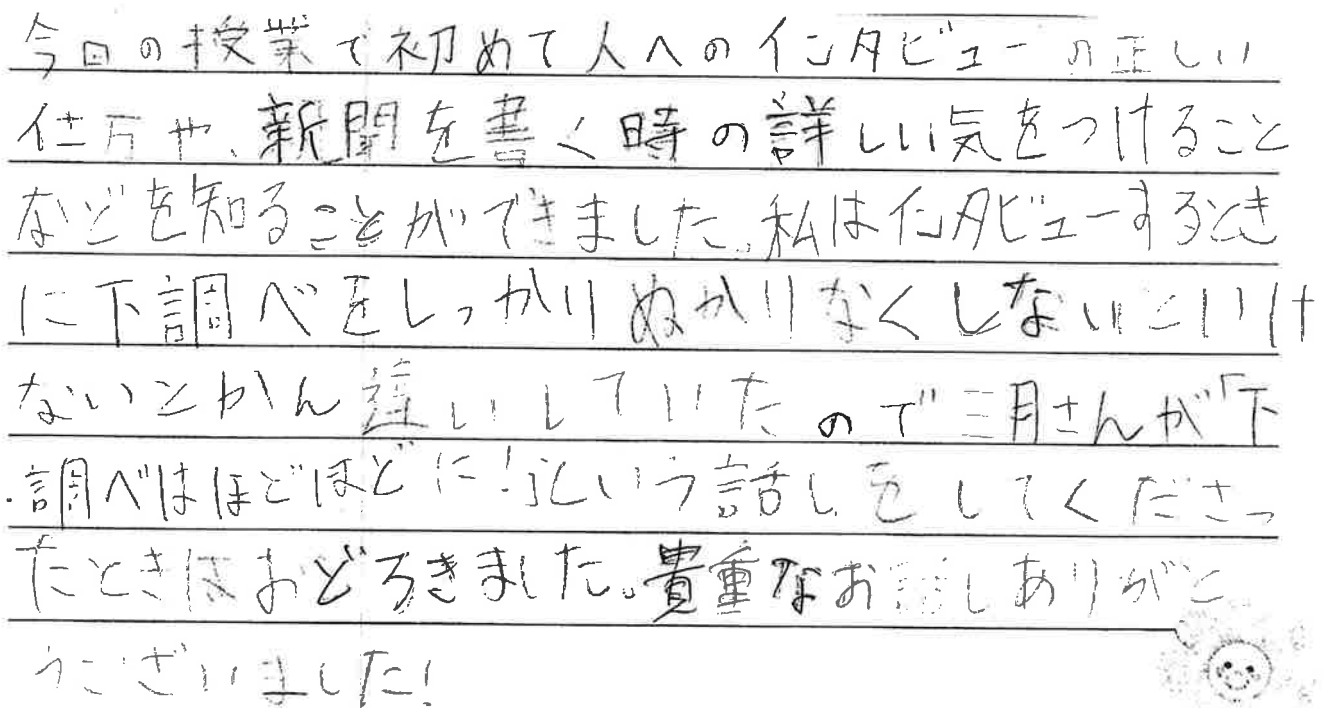 今日の授業で初めて人へのインタビューの正しい
仕方や、新聞を書く時の詳しい気をつけること
などを知ることができました。私はインタビューするとき
に下調べをしっかりぬかりなくしないといけ
ないとかん違いしていたので三月さんが「下
調べはほどほどに!」という話しをしてくださっ
たときはおどろきました。貴重なお話しありがと
うございました!